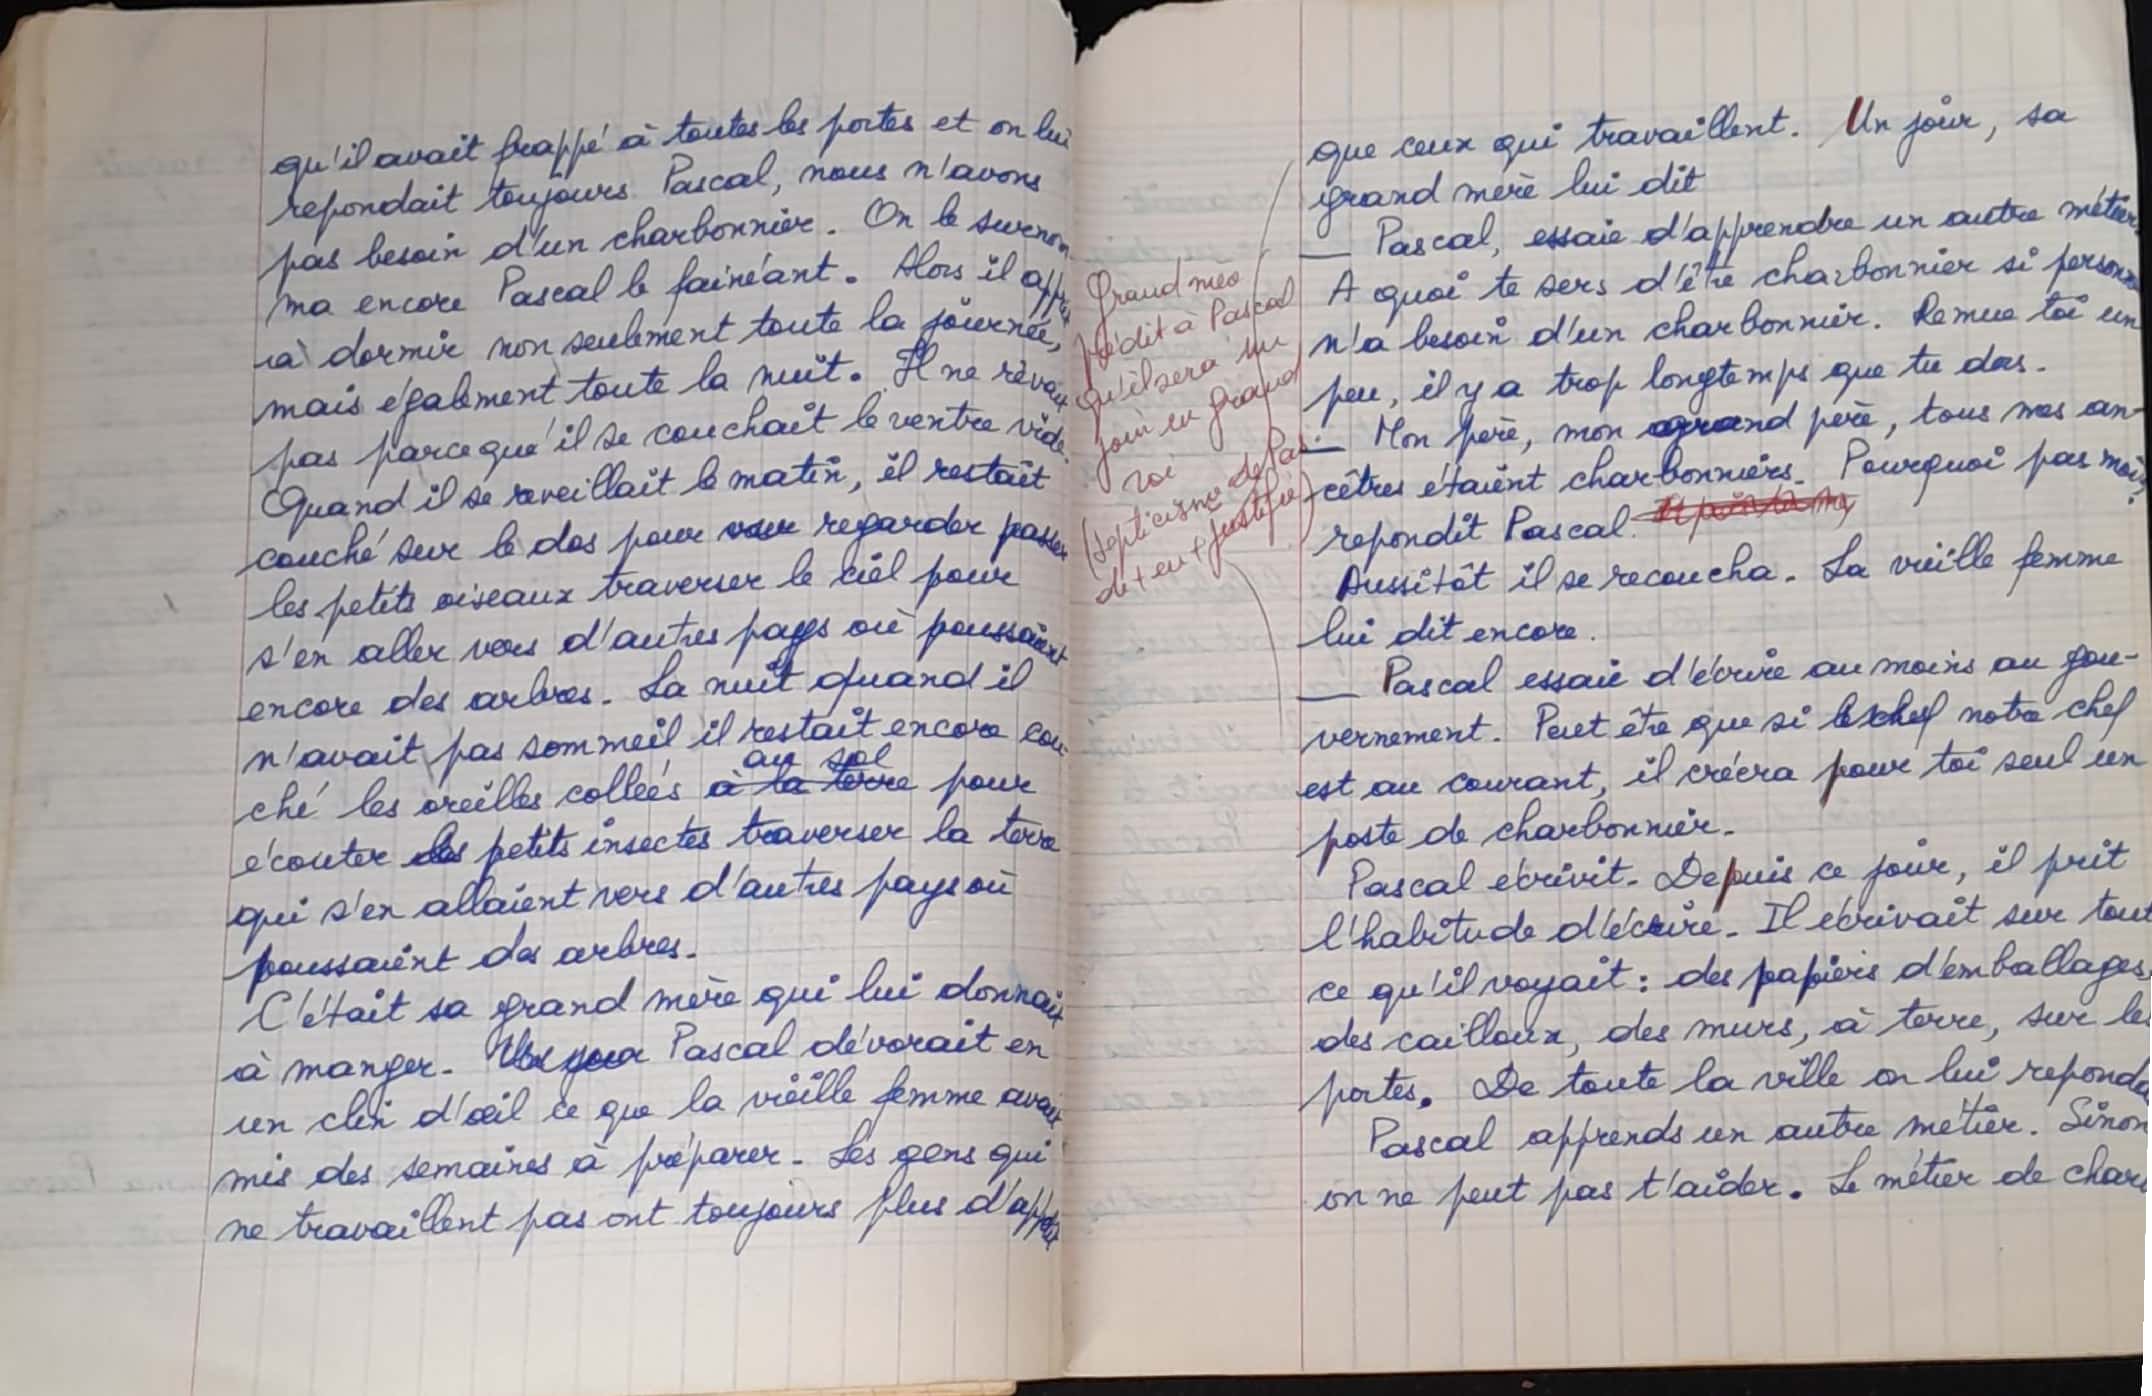 qu'il avait frappé à toutes les portes et on lui
repondait toujours Pascal, nous n'avons
pas besoin d'un charbonnier. On le surnom
ma encore Pascal le fainéant. Alors il apprit
à dormir non seulement toute la journée,
mais également toute la nuit. Il ne rêvait
pas parce que il se couchait le ventre vide.
Quand il se reveillait le matin, il restait
couché sur le dos pour regarder passer
les petits oiseaux traverser le ciel pour
s'en aller vers d'autres pays où poussaient
encore des arbres. La nuit quand il
n'avait pas sommeil il restait encore cou-
au sol
ché les oreilles collées à la terre pour
écouter les petits insectes traverser la terre
qui s'en allaient vers d'autres pays où
poussaient des arbres.
C'était sa grand mère qui lui donnait
à manger. Pascal dévorait en
un clin d'œil ce que la vieille femme avait
mis des semaines à préparer. Les gens qui
ne travaillent pas ont toujours plus d'appétit
Grand mère
prédit à Pascal
qu'il sera un
jour un grand
roi
(septicisme de Pas
de + en + justifié)
que ceux qui travaillent. Un jour, sa
grand mère lui dit
— Pascal, essaie d'apprendre un autre métier
A quoi te sers d'être charbonnier si personne
n'a besoin d'un charbonnier. Remue toi un
peu, il y a trop longtemps que tu dors.
— Mon père, mon grand père, tous mes an-
cêtres étaient charbonniers. Pourquoi pas moi?
repondit Pascal.
Aussitôt il se recoucha. La vieille femme
lui dit encore.
— Pascal essaie d'écrire au moins au gou-
vernement. Peut être que si le chef notre chef
est au courant, il créera pour toi seul un
poste de charbonnier.
Pascal écrivit. Depuis ce jour, il prit
l'habitude d'écrire. Il écrivait sur tout
ce qu'il voyait : des papiers d'emballages,
des cailloux, des murs, à terre, sur les
portes. De toute la ville on lui reponda
Pascal apprends un autre métier. Sinon
on ne peut pas t'aider. Le métier de char